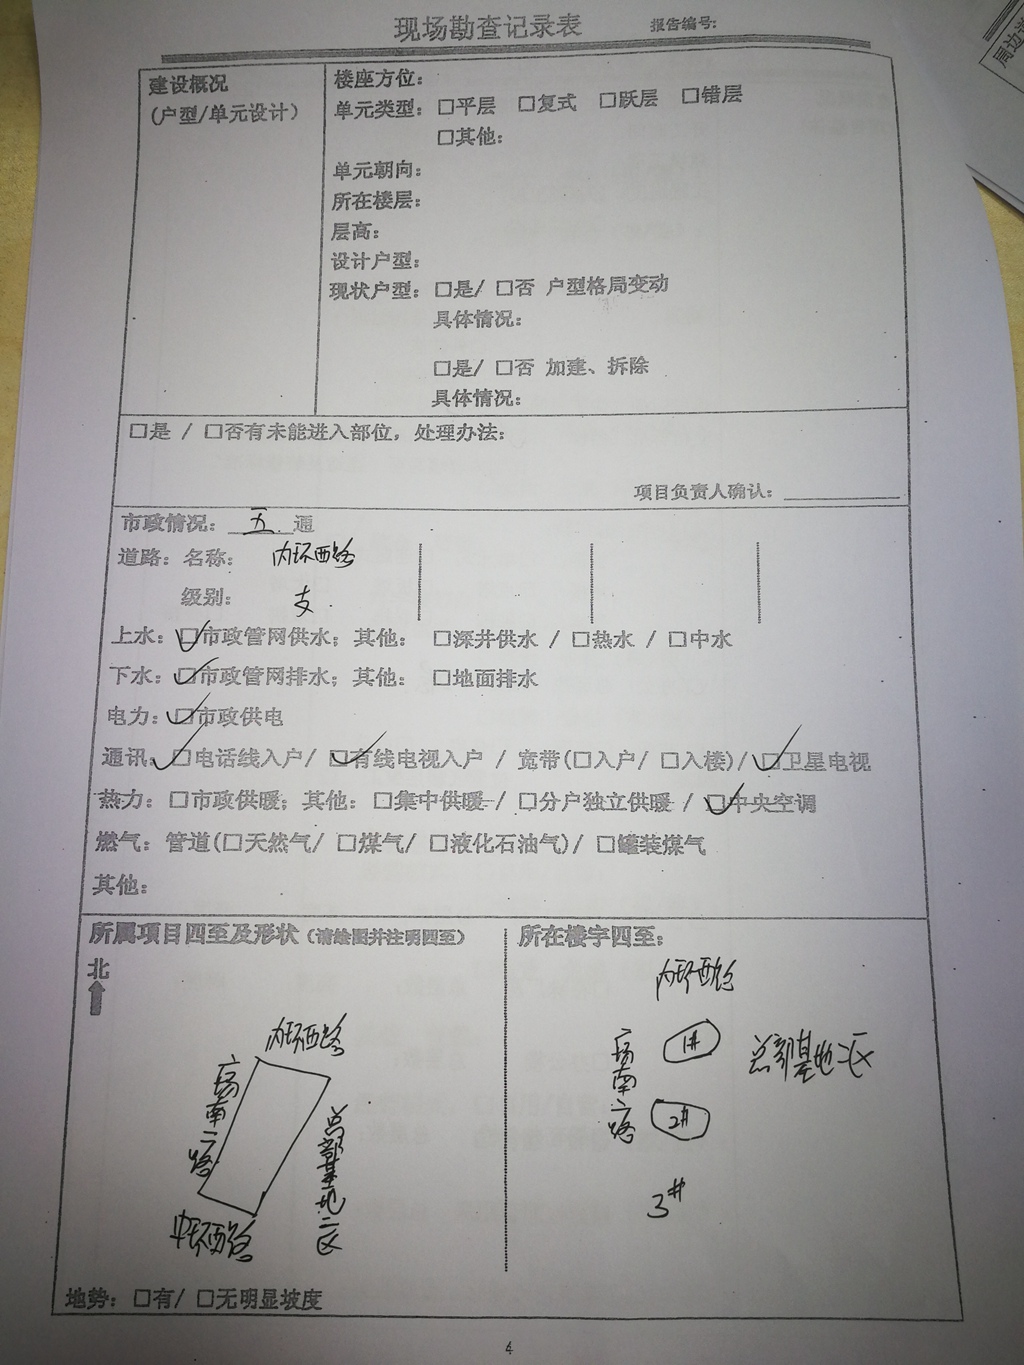 现场勘查记录表 报告编号:
建设概况
(户型/单元设计)
楼座方位:
单元类型: □平层 □复式 □跃层 □错层
□其他:
单元朝向:
所在楼层:
层高:
设计户型:
现状户型: □是/ □否 户型格局变动
具体情况:
□是/ □否 加建、拆除
具体情况:
□是 / □否有未能进入部位, 处理办法:
项目负责人确认:
市政情况: 五 通
道路: 名称: 内环西路
级别: 支
上水: ☑市政管网供水; 其他: □深井供水 / □热水 / □中水
下水: ☑市政管网排水; 其他: □地面排水
电力: ☑市政供电
通讯: ☑电话线入户/ ☑有线电视入户 / 宽带(□入户/ □入楼)/ ☑卫星电视
热力: □市政供暖; 其他: □集中供暖 / □分户独立供暖 / ☑中央空调
燃气: 管道(□天然气/ □煤气/ □液化石油气)/ □罐装煤气
其他:
所属项目四至及形状 (请绘图并注明四至)
北
内环西路
广场南二路
总部基地二区
中环西路
所在楼宇四至:
内环西路
广场南二路
1#
总部基地二区
2#
3#
地势: □有/ □无明显坡度
4
周边